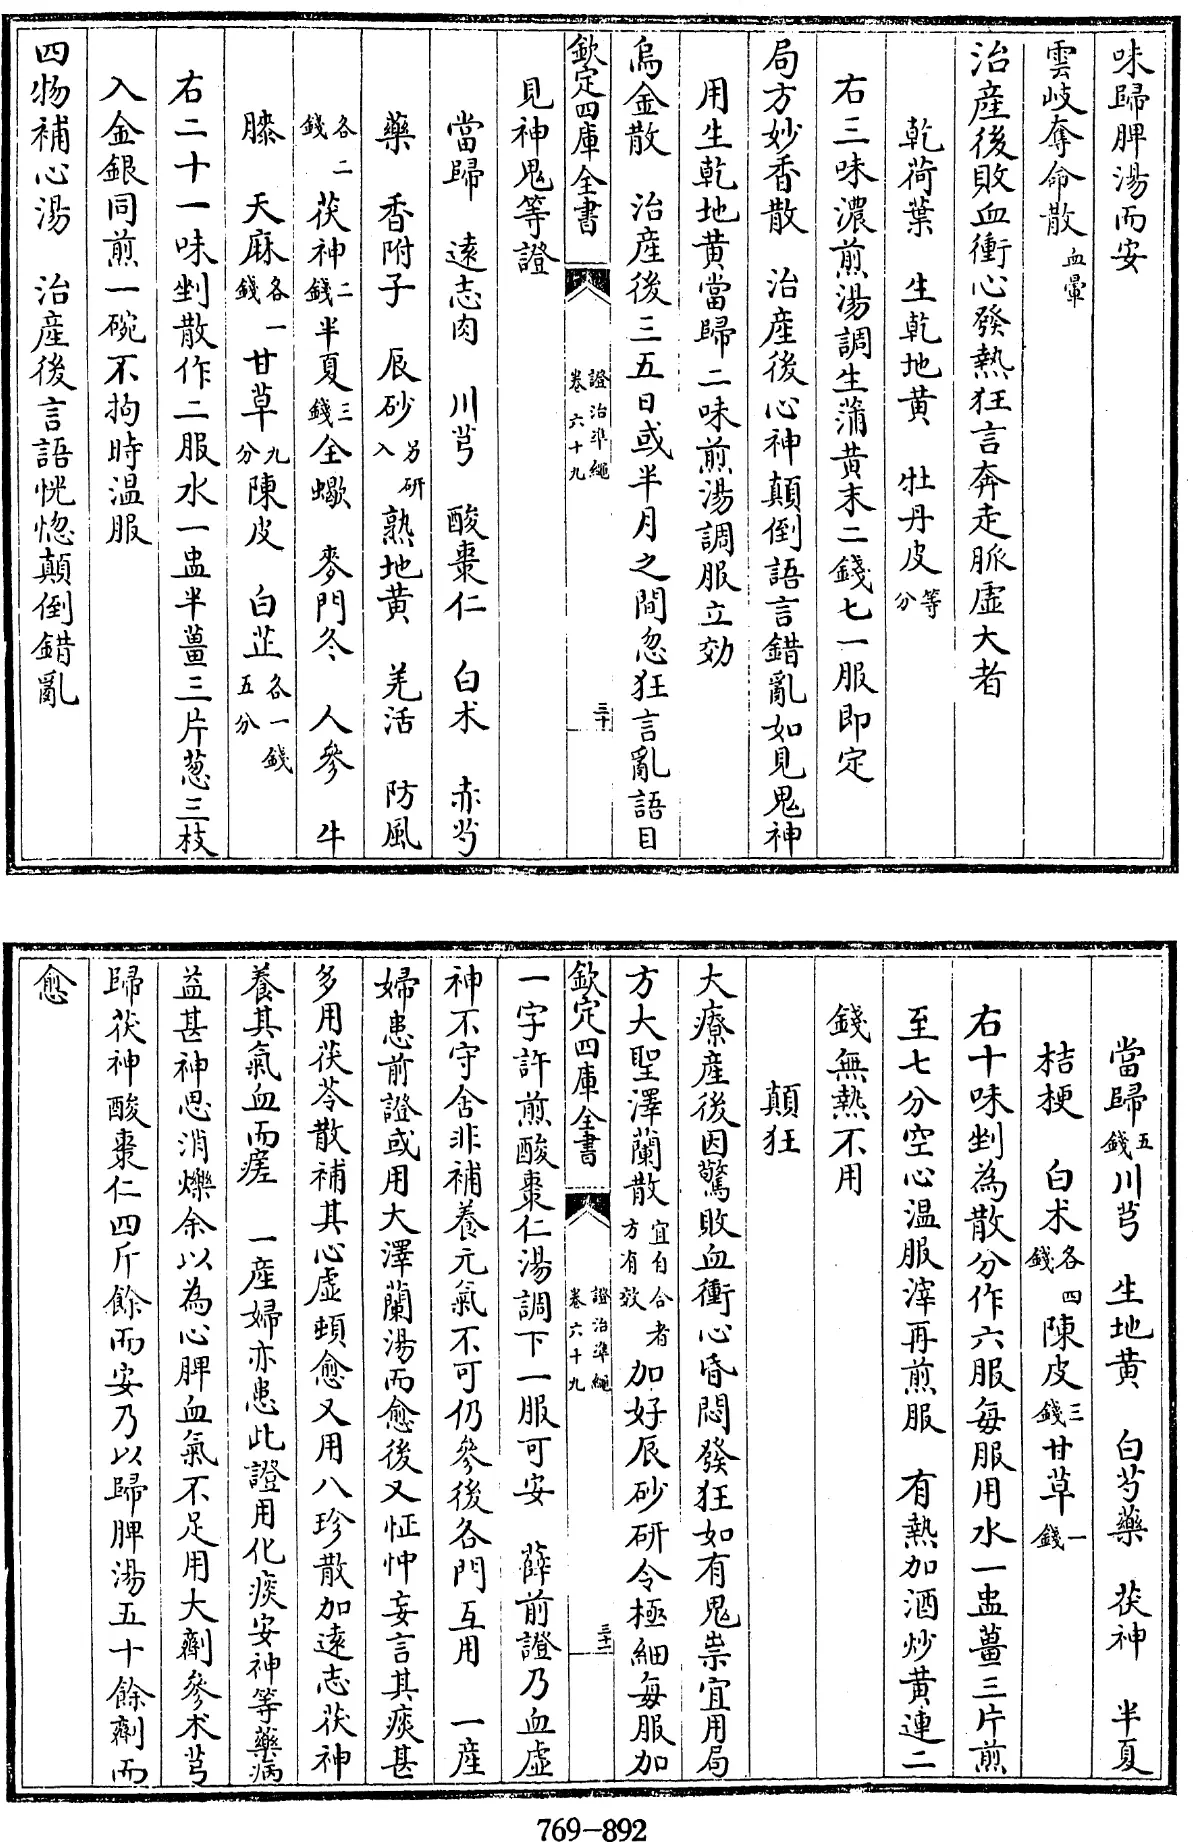 味歸脾湯而安
雲岐奪命散血暈
治產後敗血衝心發熱狂言奔走脈虛大者
乾荷葉 生乾地黃 牡丹皮等分
右三味濃煎湯調生蒲黃末二錢匕一服即定
局方妙香散 治產後心神顛倒語言錯亂如見鬼神
用生乾地黃當歸二味煎湯調服立効
烏金散 治產後三五日或半月之間忽狂言亂語目
欽定四庫全書 證治準繩卷六十九 三十
見神鬼等證
當歸 遠志肉 川芎 酸棗仁 白朮 赤芍
藥 香附子 辰砂另研入 熟地黃 羌活 防風
各二錢 茯神二錢 半夏三錢 全蠍 麥門冬 人參 牛
膝 天麻各一錢 甘草九分 陳皮 白芷各一錢五分
右二十一味剉散作二服水一盅半薑三片葱三枝
入金銀同煎一碗不拘時温服
四物補心湯 治產後言語恍惚顛倒錯亂
當歸五錢 川芎 生地黃 白芍藥 茯神 半夏
桔梗 白朮各四錢 陳皮三錢 甘草一錢
右十味剉為散分作六服每服用水一盅薑三片煎
至七分空心温服滓再煎服 有熱加酒炒黃連二
錢無熱不用
顛狂
大療產後因驚敗血衝心昏悶發狂如有鬼祟宜用局
方大聖澤蘭散宜自合者方有效加好辰砂研令極細每服加
欽定四庫全書 證治準繩卷六十九 三十一
一字許煎酸棗仁湯調下一服可安 薛前證乃血虛
神不守舍非補養元氣不可仍參後各門互用 一產
婦患前證或用大澤蘭湯而愈後又怔忡妄言其痰甚
多用茯苓散補其心虛頓愈又用八珍散加遠志茯神
養其氣血而瘥 一產婦亦患此證用化痰安神等藥病
益甚神思消爍余以為心脾血氣不足用大劑參朮芎
歸茯神酸棗仁四斤餘而安乃以歸脾湯五十餘劑而
愈
769-892